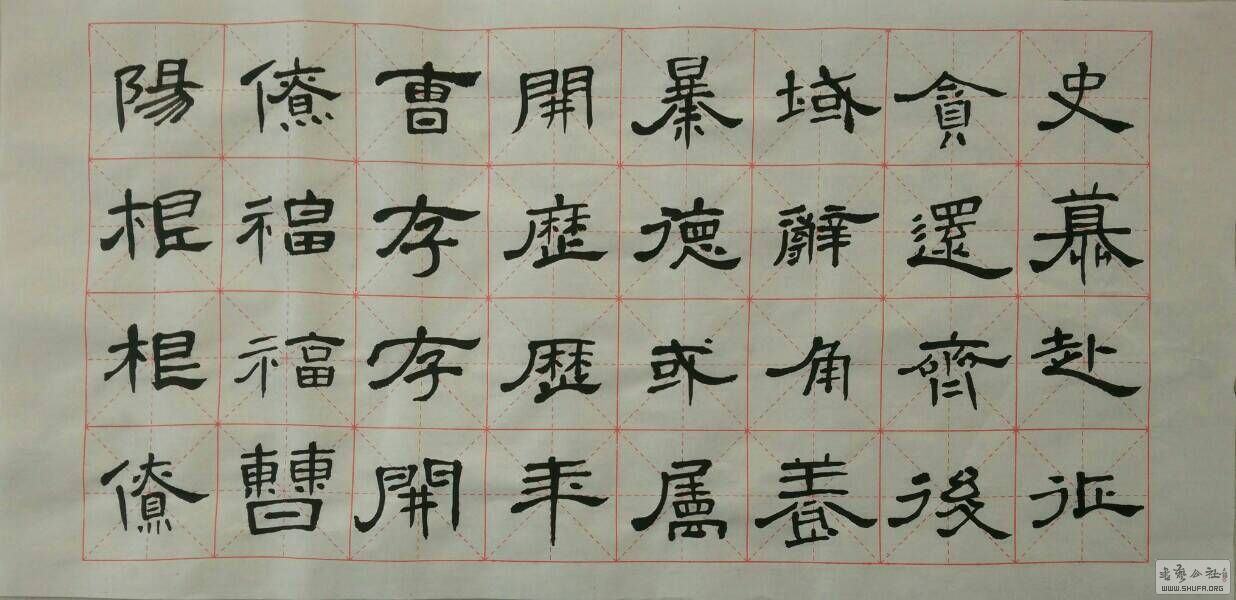 史慕赴征
貪還齊後
域辭角養
暴德或屬
開歷歷年
曹存存開
僚福福曹
陽根根僚
书艺公社
WWW.SHUFA.ORG